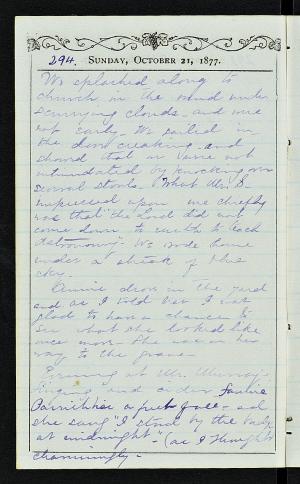 294.
SUNDAY, OCTOBER 21, 1877.
We splashed along to
church in the mud under
scurrying clouds - and were
not early. We sailed in
the door creaking - and
showed that we were not
intimidated by knocking over
several stools. What Mr. B.
impressed upon me chiefly
was that "the Lord did not
come down to earth to teach
astronomy." We rode home
under a streak of blue
sky.
Annie drove in the yard
and as I told her I was
glad to have a chance to
see what she looked like
once more. She was on her
way to the
Evening at Mr. Murray's
Singing and cider
a face - and
she sang "I stood by the bridge
at midnight" - (as I thought
charmingly -